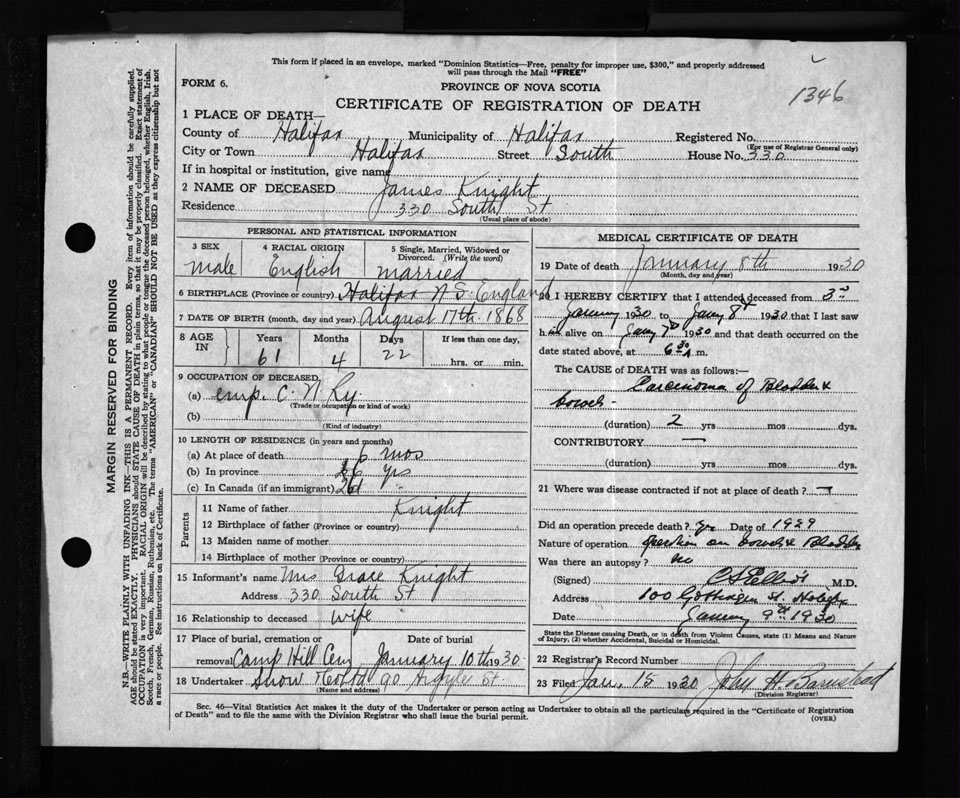 This form if placed in an envelope, marked "Dominion Statistics—Free, penalty for improper use, $300," and properly addressed
will pass through the Mail "FREE"
FORM 6.
PROVINCE OF NOVA SCOTIA
1346
CERTIFICATE OF REGISTRATION OF DEATH
1 PLACE OF DEATH—
County of Halifax Municipality of Halifax Registered No.
(For use of Registrar General only)
City or Town Halifax Street South House No. 330
If in hospital or institution, give name
2 NAME OF DECEASED James Knight
Residence 330 South St
(Usual place of abode)
PERSONAL AND STATISTICAL INFORMATION
3 SEX 4 RACIAL ORIGIN 5 Single, Married, Widowed or Divorced. (Write the word)
male English married
6 BIRTHPLACE (Province or country) Halifax N S England
7 DATE OF BIRTH (month, day and year) August 17th 1868
8 AGE IN Years Months Days If less than one day,
61 4 22 hrs. or min.
9 OCCUPATION OF DECEASED
(a) emp. C. N Ry
(Trade or occupation or kind of work)
(b)
(Kind of industry)
10 LENGTH OF RESIDENCE (in years and months)
(a) At place of death 6 mos
(b) In province 26 yrs
(c) In Canada (if an immigrant) 26 "
Parents
11 Name of father Knight
12 Birthplace of father (Province or country)
13 Maiden name of mother
14 Birthplace of mother (Province or country)
15 Informant's name Mrs Grace Knight
Address 330 South St
16 Relationship to deceased wife
17 Place of burial, cremation or removal Date of burial
Camp Hill Cem January 10th 1930
18 Undertaker Snow 90 Argyle St
(Name and address)
MEDICAL CERTIFICATE OF DEATH
19 Date of death January 8th 1930
(Month, day and year)
20 I HEREBY CERTIFY that I attended deceased from 3rd
January 1930 to Jany 8th 1930 that I last saw
him alive on Jany 7th 1930 and that death occurred on the
date stated above, at 6 30 A m.
The CAUSE OF DEATH was as follows:—
Carcinoma of Bladder &
bowel -
(duration) 2 yrs mos dys.
CONTRIBUTORY —
(duration) yrs mos dys.
21 Where was disease contracted if not at place of death? —
Did an operation precede death? yes Date of 1929
Nature of operation operation on bowel & Bladder
Was there an autopsy? no
(Signed) M.D.
Address 100 St. Halifax
Date January 9th 1930
State the Disease causing Death, or in death from Violent Causes, state (1) Means and Nature
of Injury, (2) whether Accidental, Suicidal or Homicidal.
22 Registrar's Record Number
23 Filed Jan. 15 1930 John H. Barnstead
(Division Registrar)
Sec. 46—Vital Statistics Act makes it the duty of the Undertaker or person acting as Undertaker to obtain all the particulars required in the "Certificate of Registration
of Death" and to file the same with the Division Registrar who shall issue the burial permit.
(OVER)
MARGIN RESERVED FOR BINDING
N.B.—WRITE PLAINLY WITH UNFADING INK—THIS IS A PERMANENT RECORD. Every item of information should be carefully supplied.
AGE should be stated EXACTLY. PHYSICIANS should STATE CAUSE OF DEATH in plain terms, so that it may be properly classified. Exact statement of
OCCUPATION is very important. RACIAL ORIGIN will be described by stating to what people or tongue the deceased person belonged, whether English, Irish,
Scotch, French, German, Russian, Ruthenian, etc. The terms "AMERICAN" or "CANADIAN" SHOULD NOT BE USED as they express citizenship but not
a race or people. See instructions on back of Certificate.